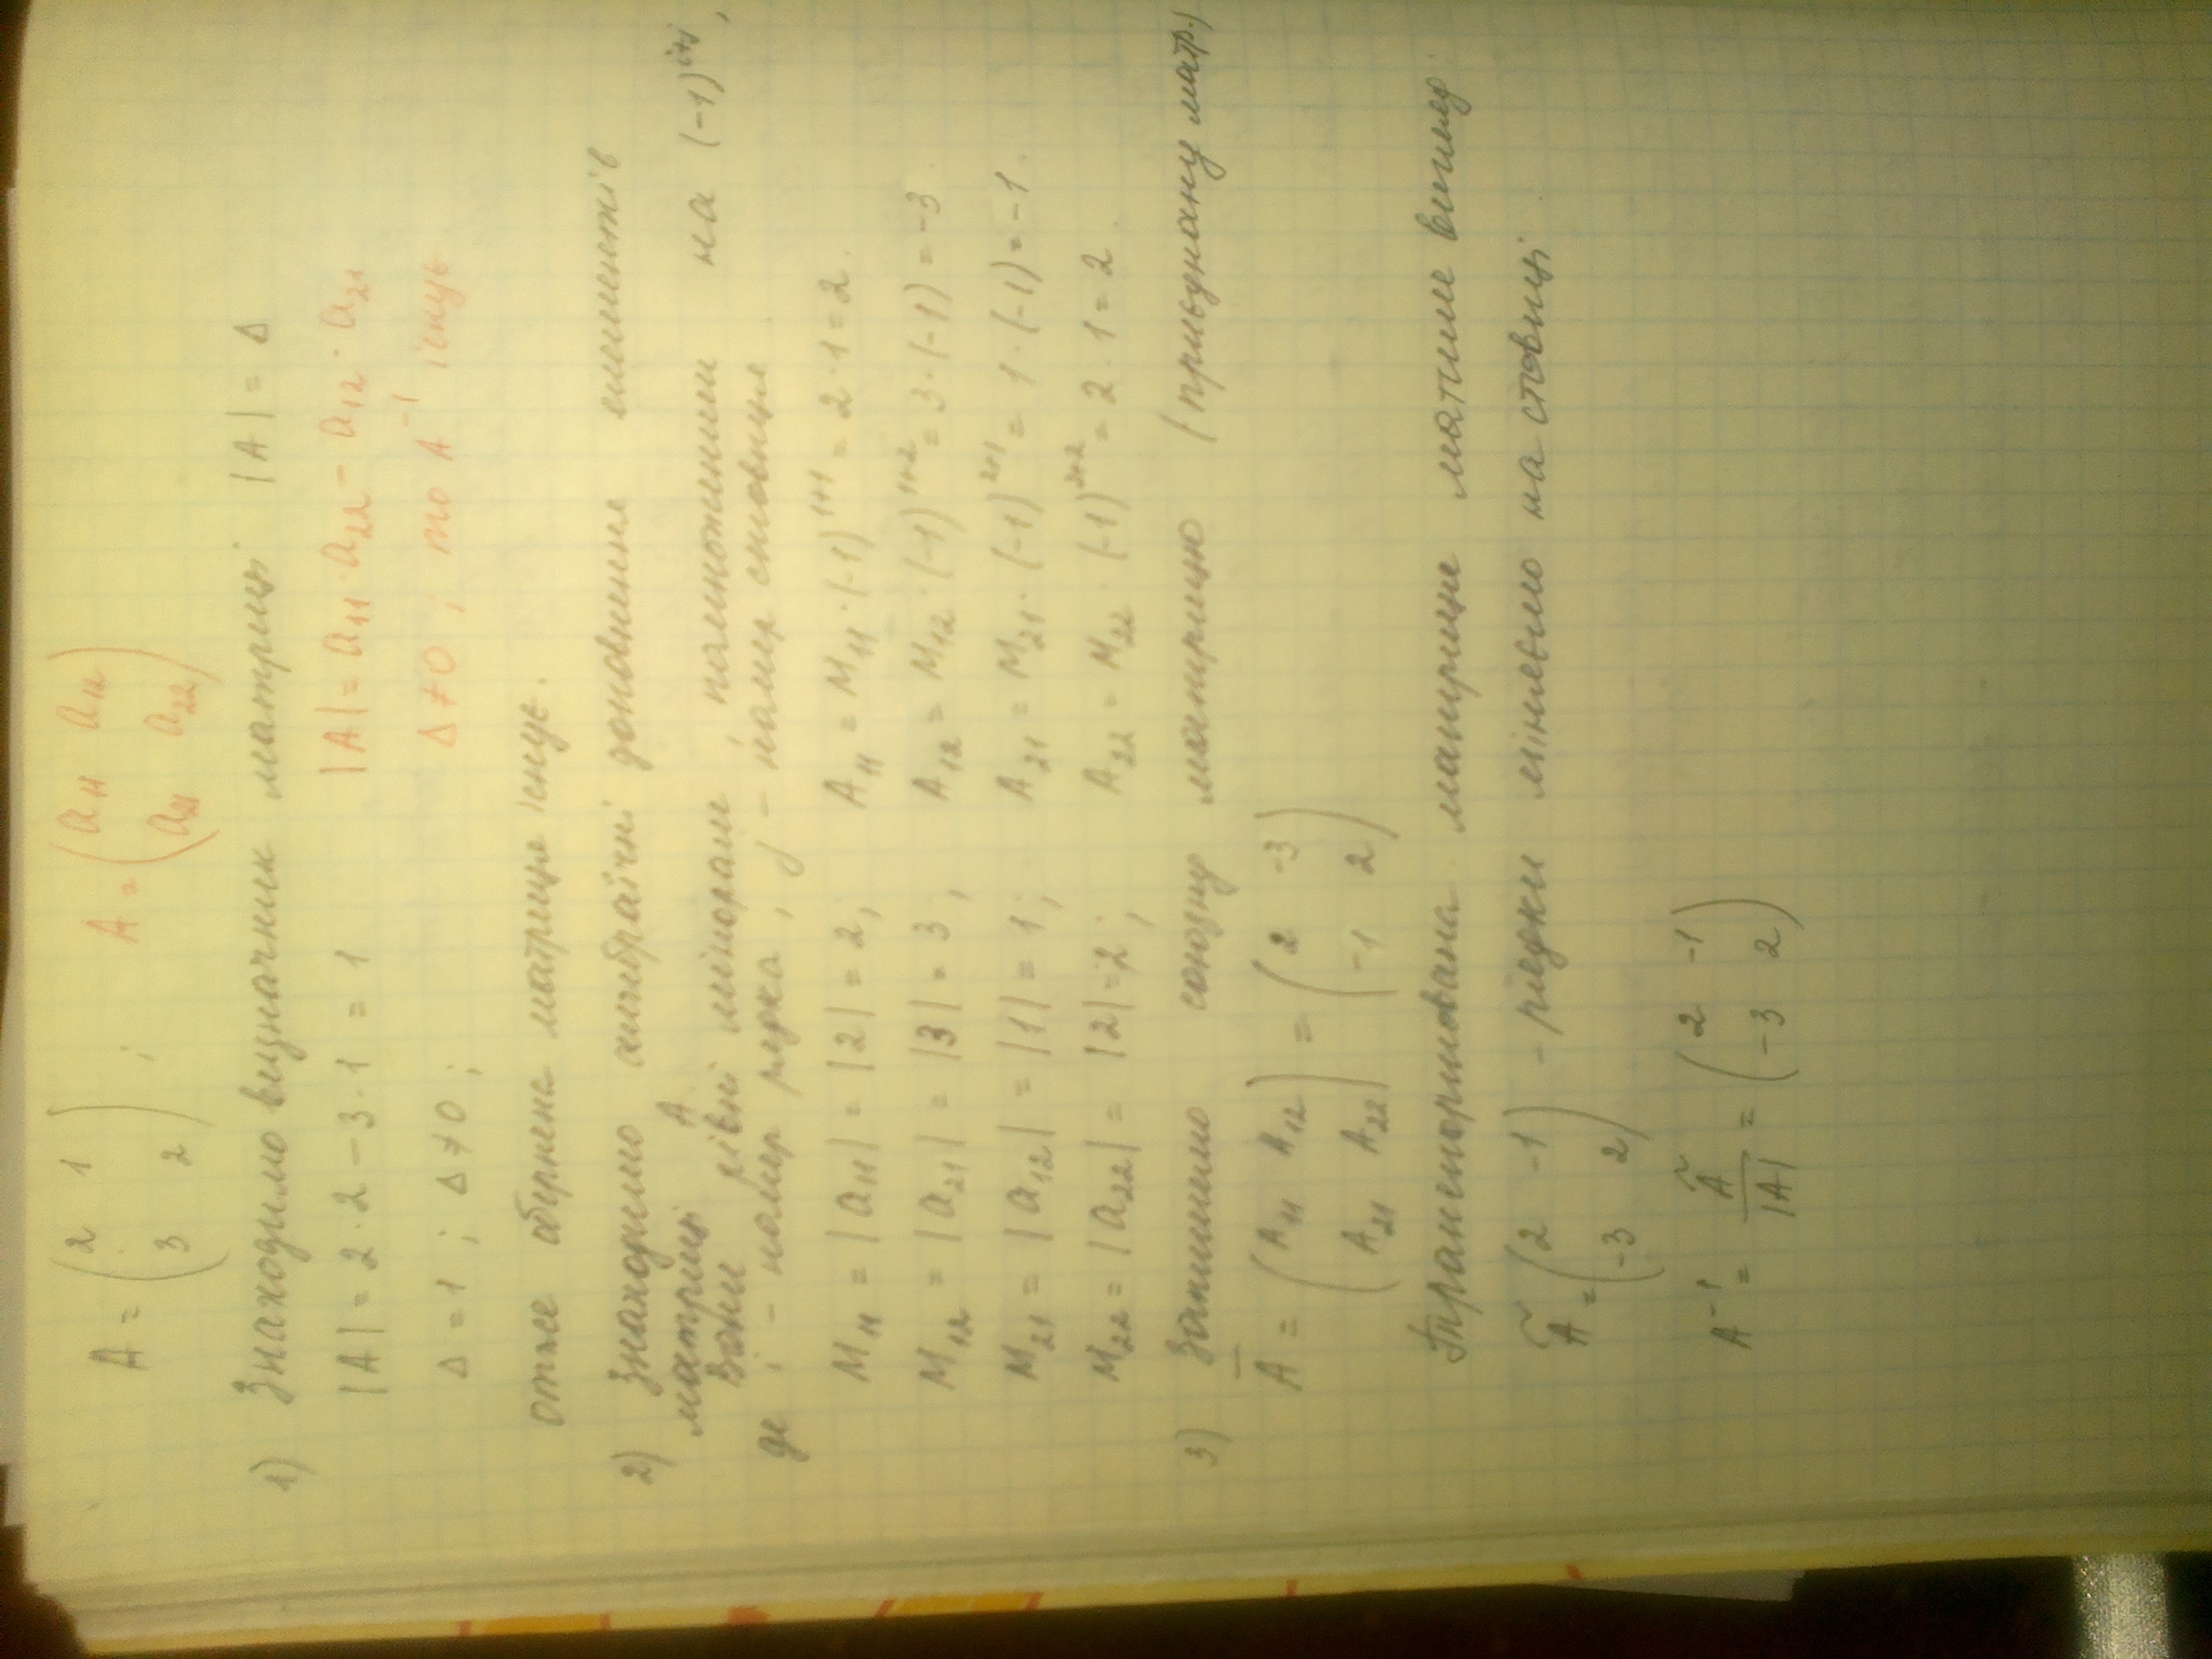 A = (2 1
3 2) ; A = (a11 a12
a21 a22)
1) Знаходимо визначник матриці |A| = Δ
|A| = 2·2 − 3·1 = 1 |A| = a11·a22 − a12·a21
Δ = 1 ; Δ ≠ 0 ; Δ ≠ 0 ; то A^-1 існує
отже обернена матриця існує.
2) Знаходимо алгебраїчні доповнення елементів
матриці A
Вони рівні мінорам помноженим на (−1)^i+j,
де i – номер рядка, j – номер стовпця
M11 = |a11| = |2| = 2; A11 = M11·(−1)^1+1 = 2·1 = 2.
M12 = |a21| = |3| = 3; A12 = M12·(−1)^1+2 = 3·(−1) = −3.
M21 = |a12| = |1| = 1; A21 = M21·(−1)^2+1 = 1·(−1) = −1.
M22 = |a22| = |2| = 2; A22 = M22·(−1)^2+2 = 2·1 = 2.
3) Запишемо союзну матрицю (приєднану матр.)
A̅ = (A11 A12
A21 A22) = (2 −3
−1 2)
Транспонована матриця матиме вигляд:
Ã = (2 −1
−3 2) – рядки міняємо на стовпці
A^-1 = Ã/|A| = (2 −1
−3 2)